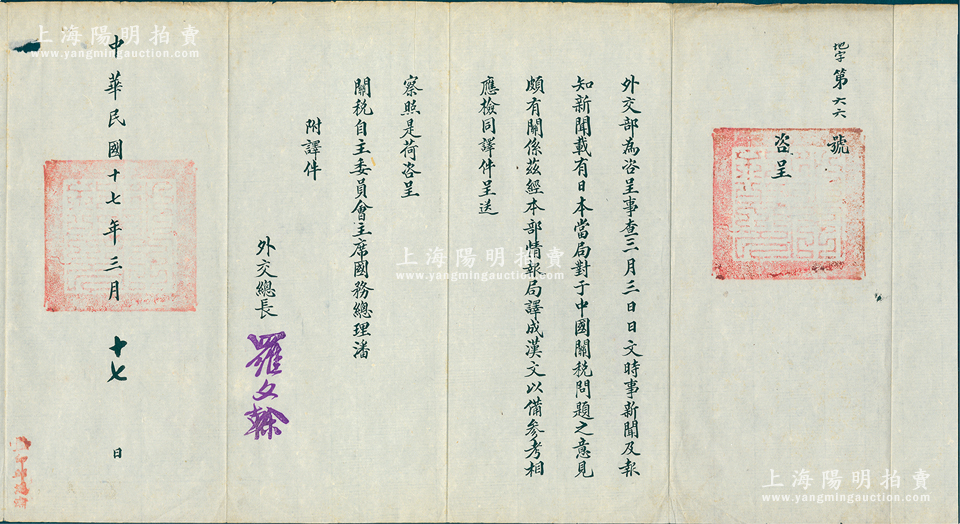 地字第六六號
咨呈
外交部為咨呈事查三月三日日文時事新聞及報
知新聞載有日本當局對于中國關稅問題之意見
頗有關係茲經本部情報局譯成漢文以備參考相
應檢同譯件呈送
察照是荷咨呈
關稅自主委員會主席國務總理潘
附譯件
外交總長
羅文榦
中華民國十七年三月十七日
上海陽明拍賣
www.yangmingauction.com
上海陽明拍賣
www.yangmingauction.com
上海陽明拍賣
www.yangmingauction.com
上海陽明拍賣
www.yangmingauction.com